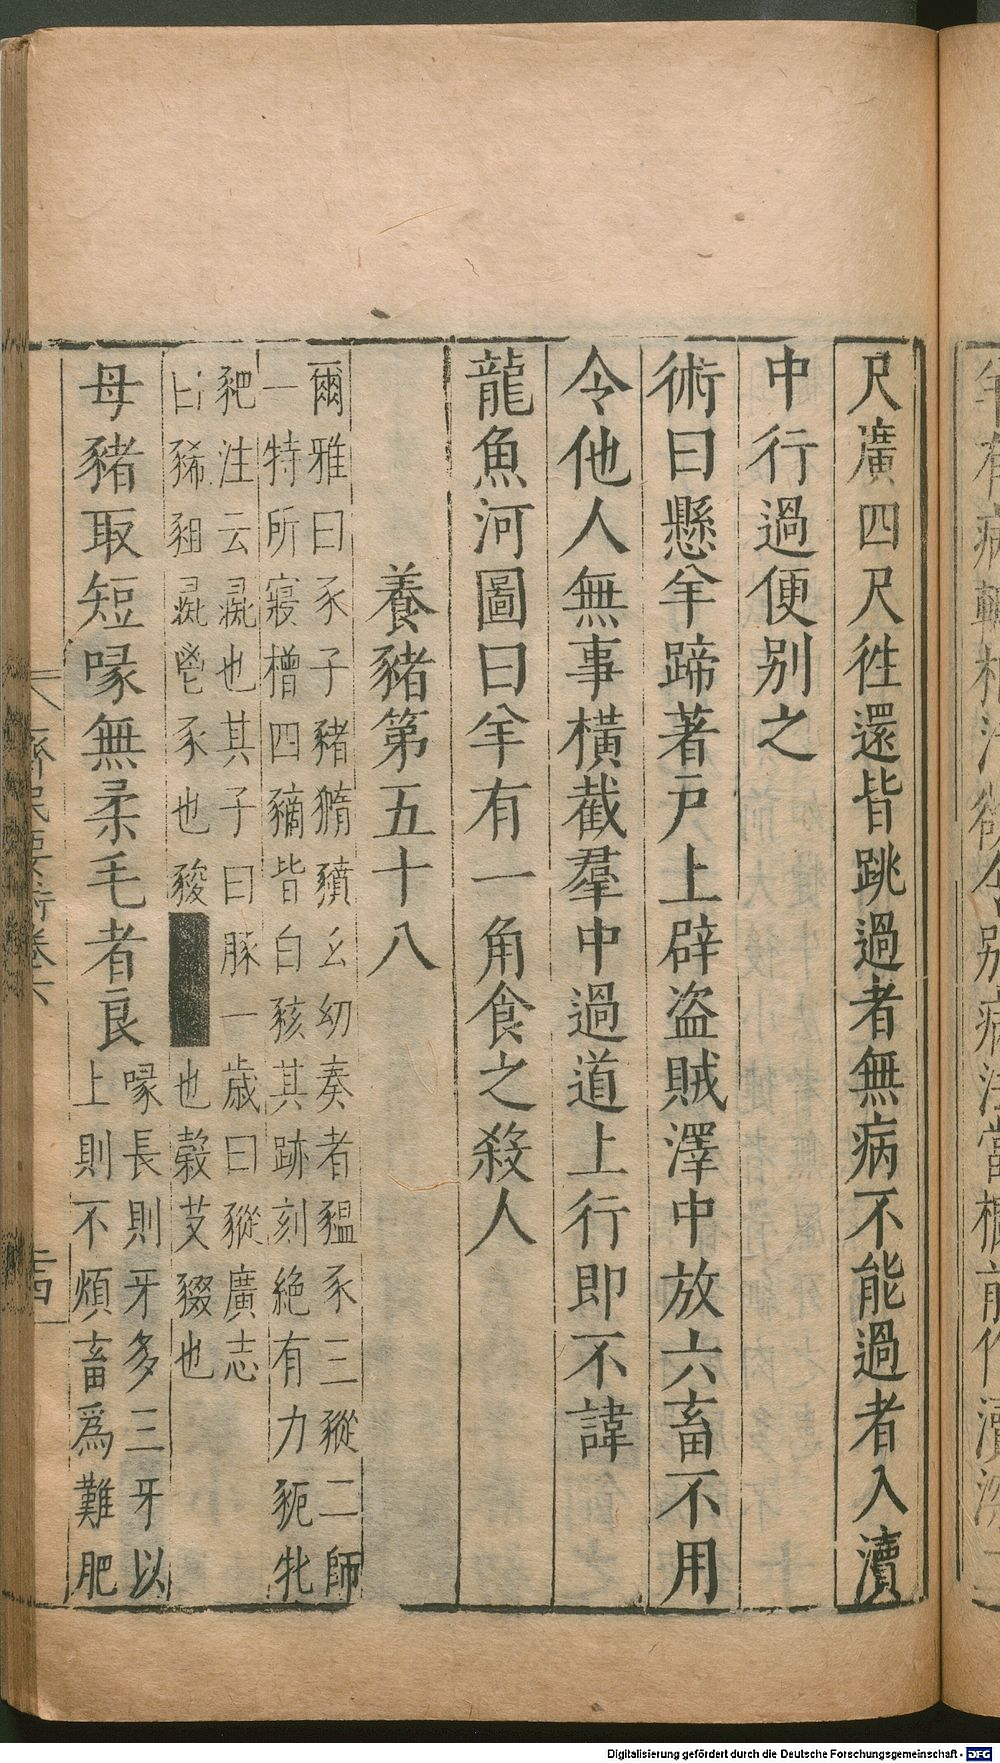 尺廣四尺徃還皆跳過者無病不能過者入瀆
中行過便别之
術曰懸羊蹄著戸上辟盗賊澤中放六畜不用
令他人無事横截羣中過道上行即不諱
龍魚河圖曰羊有一角食之殺人
養豬第五十八
爾雅曰豕子豬䝐豶幺幼奏者豱豕三豵二師
一特所寢橧四豴皆白豥其跡刻絶有力豟牝
豝注云彘也其子曰豚一歳曰豵廣志
曰豨豠彘皆豕也豵也豰艾豭也
母豬取短喙無柔毛者良
喙長則牙多三牙以
上則不煩畜爲難肥
齊民要術卷六
十四
Digitalisierung gefördert durch die Deutsche Forschungsgemeinschaft - DFG